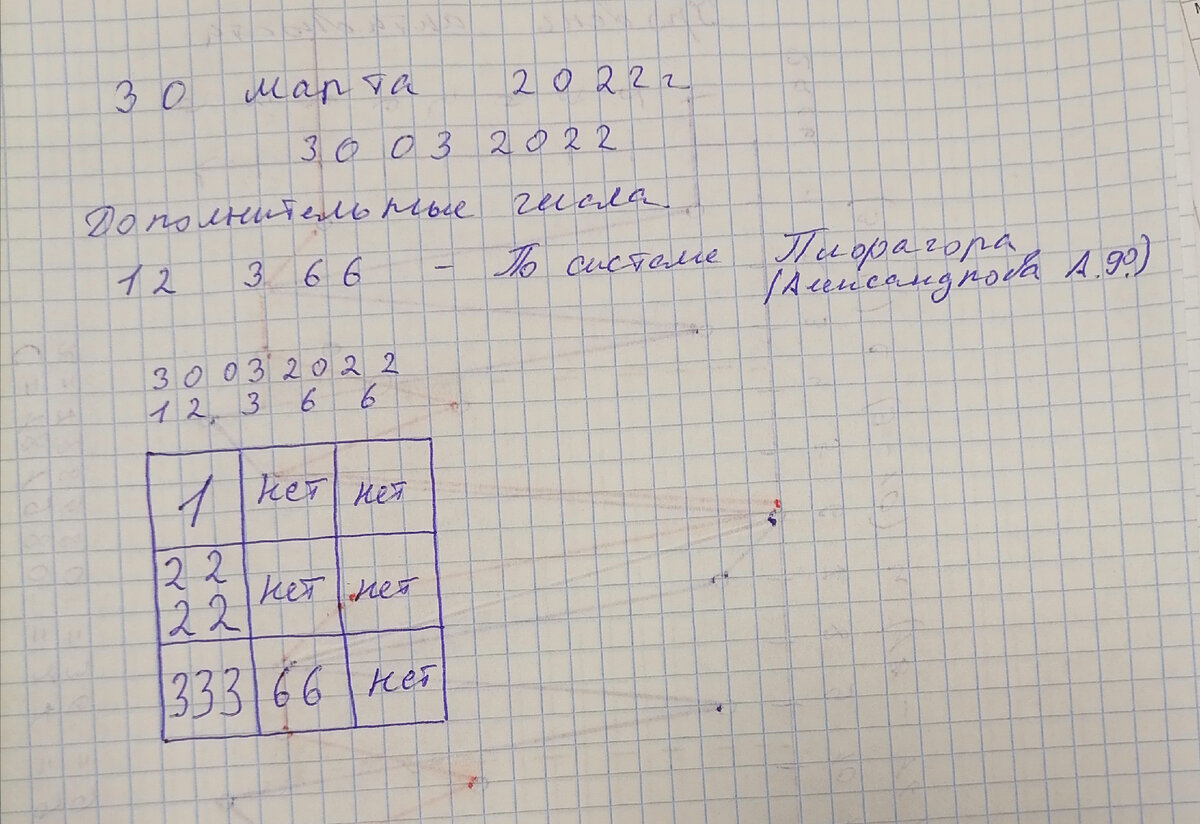 30 марта 2022г
30 03 2022
Дополнительные числа
12 3 6 6 - По системе Пифагора
(Александрова А.Ф.)
30 03 20 2 2
12, 3 6 6
1 нет нет
2 2
2 2 нет нет
333 66 нет